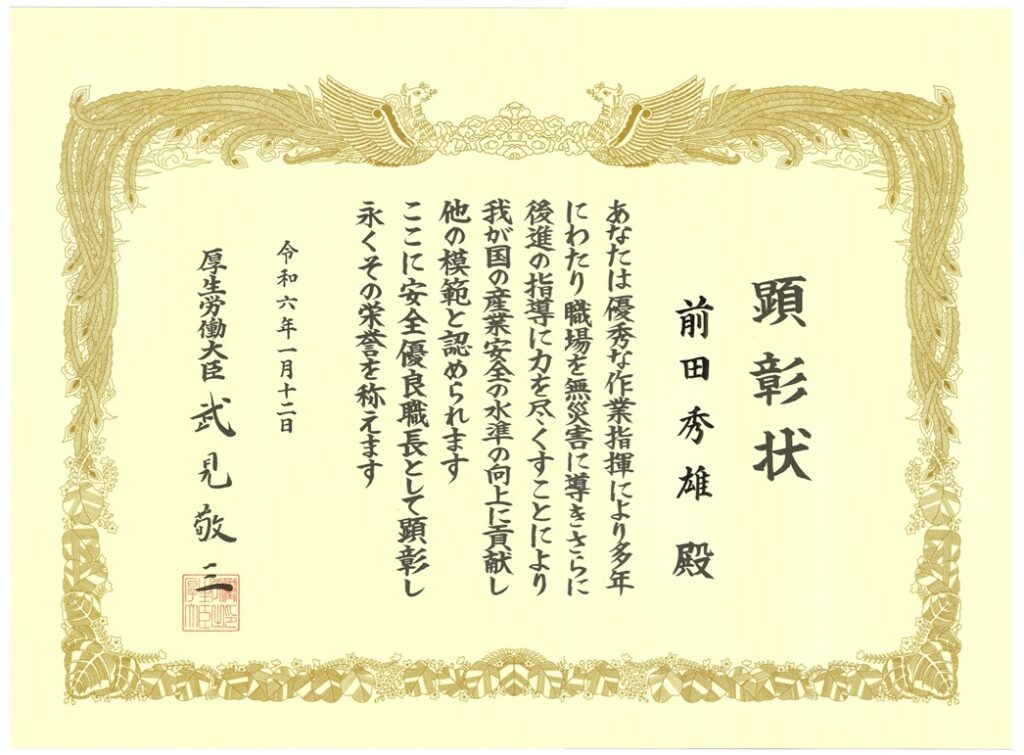 顕彰状
前田秀雄 殿
あなたは優秀な作業指揮により多年
にわたり職場を無災害に導きさらに
後進の指導に力を尽くすことにより
我が国の産業安全の水準の向上に貢献し
他の模範と認められます
ここに安全優良職長として顕彰し
永くその栄誉を称えます
令和六年一月十二日
厚生労働大臣 武見敬三